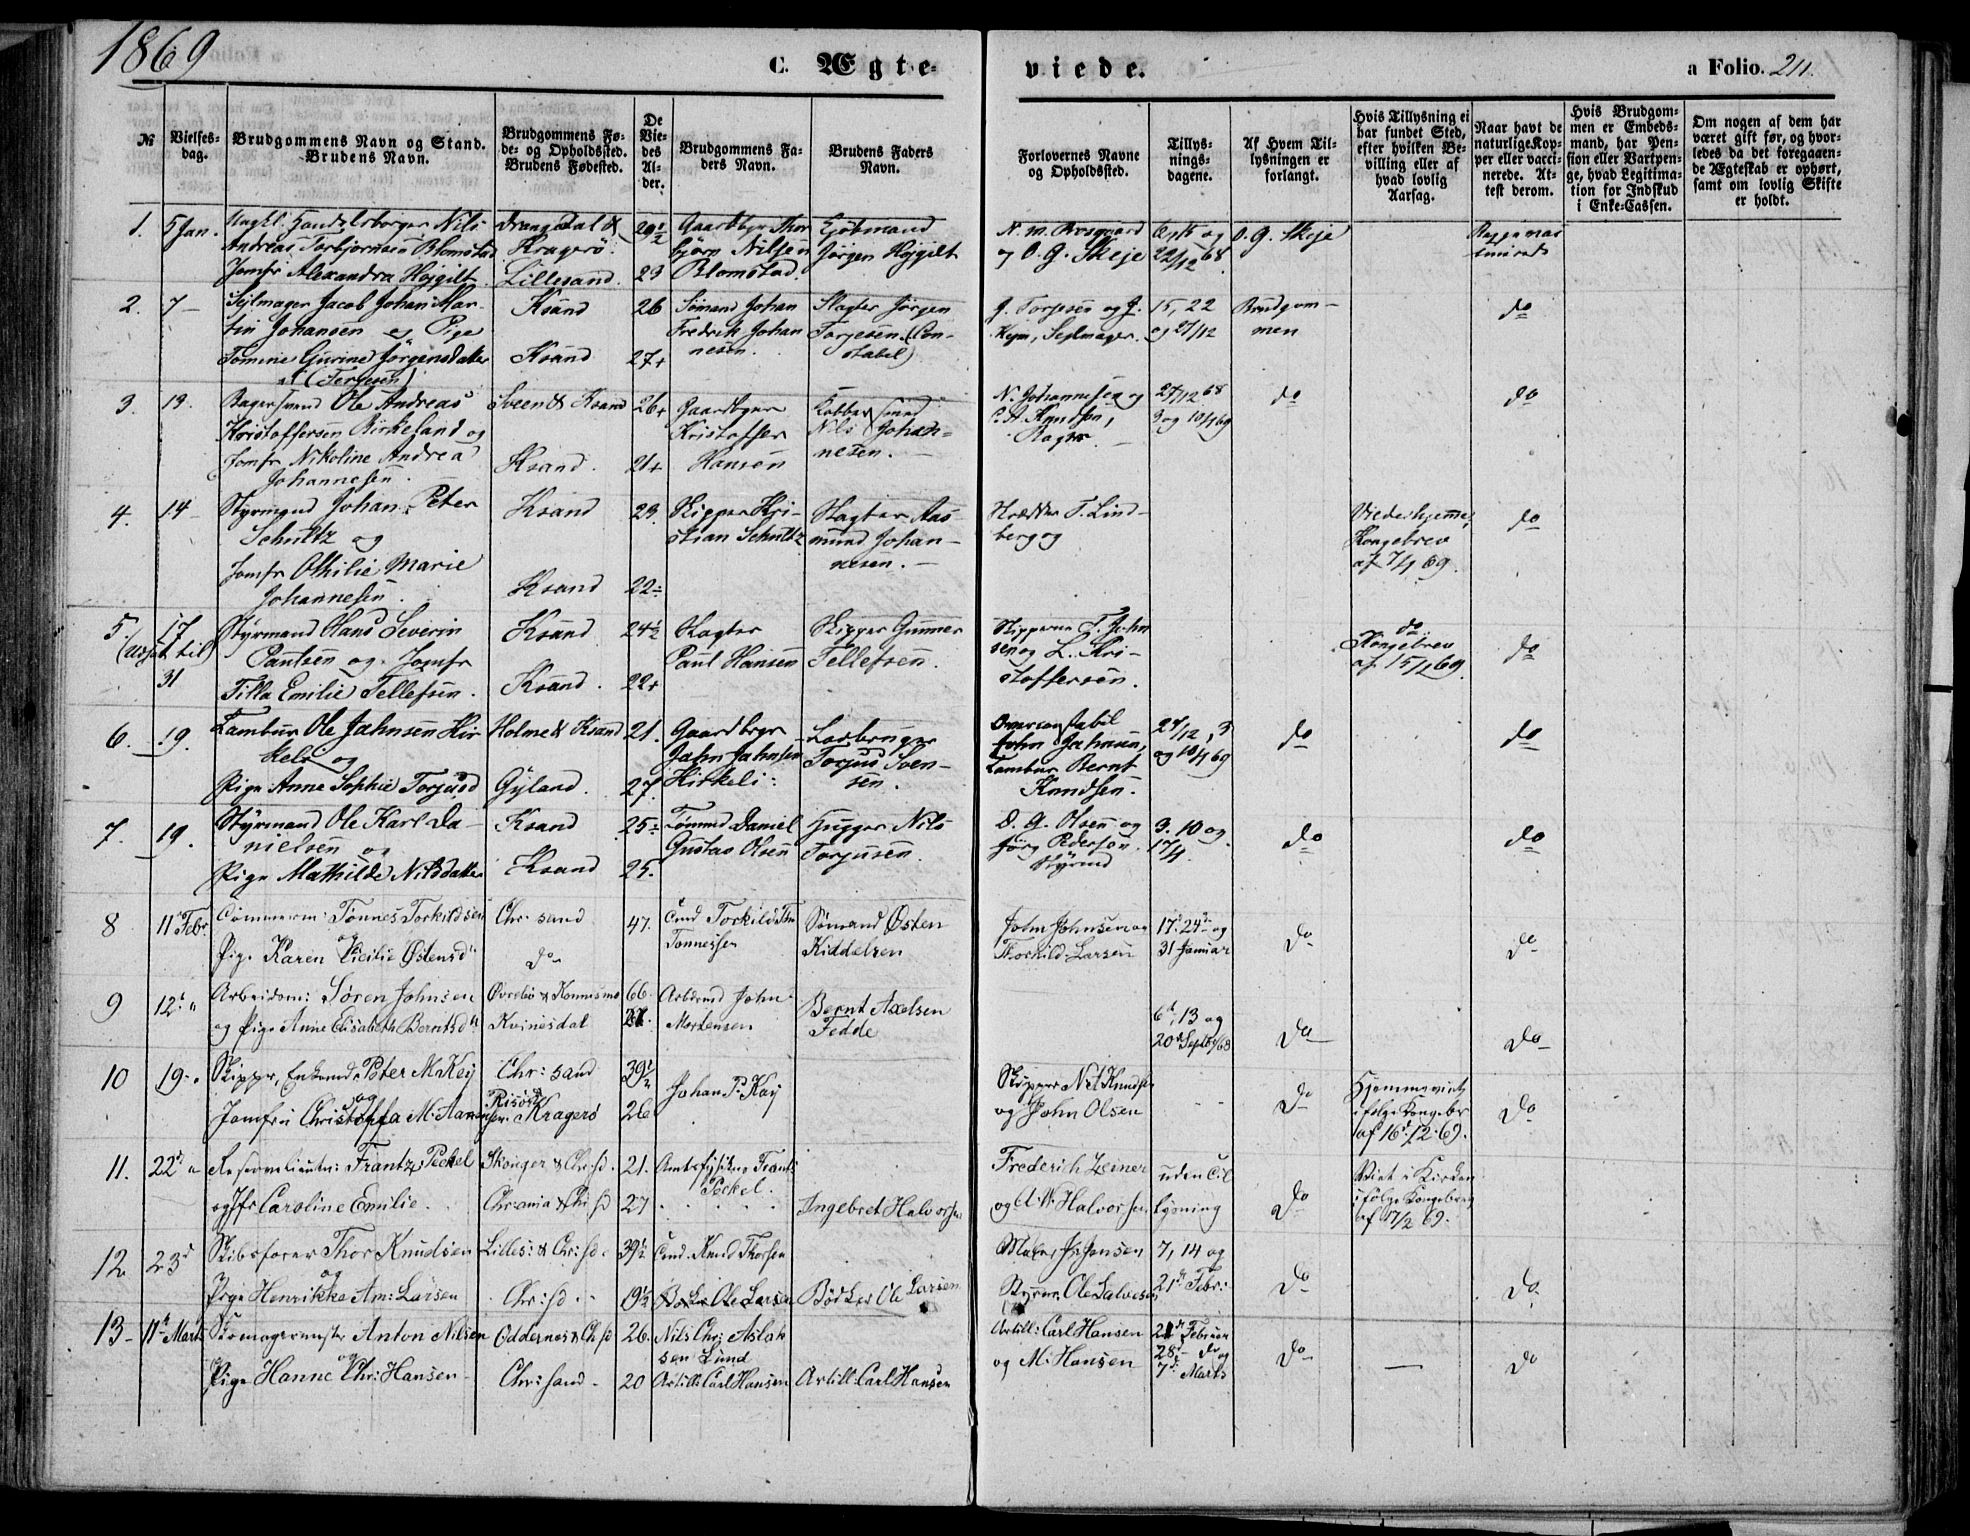 1869
C. Ægte-
viede.
a Folio. 211.
No
Vielses-
dag.
Brudgommens Navn og Stand.
Brudens Navn.
Brudgommens Fø-
de- og Opholdssted.
Brudens Fødested.
De
Vie-
des
Al-
der.
Brudgommens Fa-
ders Navn.
Brudens Faders
Navn.
Forlovernes Navne
og Opholdssted.
Tillys-
nings-
dagene.
Af Hvem Til-
lysningen er
forlangt.
Hvis Tillysning ei
har fundet Sted,
efter hvilken Be-
villing eller af
hvad lovlig
Aarsag.
Naar havt de
naturlige Kop-
per eller vacci-
nerede. At-
test derom.
Hvis Brudgom-
men er Embeds-
mand, har Pen-
sion eller Vartpen-
ge, hvad Legitima-
tion for Indskud
i Enke-Cassen.
Om nogen af dem har
været gift før, og hvor-
ledes da det foregaaen-
de Ægteskab er ophørt,
samt om lovlig Skifte
er holdt.
1. 5 Jan.
Ungkl. Handelsborger Nils
Andreas Torbjørnsen Blomstad
Jomfr Alexandra Højgilt
Drangedal &
Kragerö.
Lillesand.
29½
23
Gaardbgr Thor
björn Nilsen
Blomstad.
Kjöbmand
Jörgen Højgilt
og O. G. Skeje
22/12 68
O. G. Skeje
2. 7 –
Sejlmager Jacob Johan Mar-
tin Johansen og Pige
Tomine Gurine Jørgensdatter
(Terjesen)
Ksand
Ksand
26
27+
Sømand Johan
Fredrik Johan
nesen.
Slagter Jørgen
Torjesen (Con-
stabel)
J. Torjesen og J.
Sejlmager.
15, 22
og 27/12
Brudgom-
men
do
3. 13.
Bagersvend Ole Andreas
Kristoffersen Birkeland og
Jomfr Nikoline Andrea
Johannesen.
Sveen & Ksand
Ksand.
26+
21+
Gaardbgr
Kristoffer
Hansen
Kobbersmed
Nils Johan-
nesen.
N. Johannesen og
P. A. Knudsen,
Bager.
27/12 68
3 og 10/1 69
do
do
4. 14 –
Styrmand Johan Peter
Schultz og
Jomfr Othilie Marie
Johannesen.
Ksand
Ksand
23.
22-
Skipper Kri-
stian Schultz
Slagter Aas-
mund Johan-
nesen.
Skrædder T. Lind-
berg og
Viede hjemme,
Kongebrev
af 7/1 69.
do
5. 17
(udsat til)
31
Styrmand Hans Severin
Paulsen og Jomfr
Tilla Emilie Tellefsen.
Ksand
Ksand.
24½
22+
Slagter
Paul Hansen
Skipper Gunner
Tellefsen.
Skipperne T. John
sen og L. Kri-
stoffersen.
do
Kongebrev
af 15/1 69.
do
6. 19.
Tambur Ole Jahnsen Kir-
keli og
Pige Anne Sophie Torjusd
Holme & Ksand
Gyland.
21.
27.
Gaardbgr
Jahn Jahnsen
Kirkeli:
Torjus Sven-
sen.
Overconstabel
John Jahnsen,
Tambur Bernt
Knudsen.
27/12, 3
og 10/1 69
do
do
7. 19.
Styrmand Ole Karl Da-
nielsen og
Pige Mathilde Nilsdatter
Ksand
Ksand
25-
25.
Tømmd Daniel
Gustav Olsen
Hugger Nils
Torjusen.
D. G. Olsen og
Jörg Pedersen.
Styrmd
3. 10 og
17/1.
do
do
8 11 Febr.
Tømmerm: Tønnes Torkildsen
og
Pige Karen Cicilie Østensd"
Chr: sand
Do
47.
Tønnessen
Sømand Østen
Kiddelsen
John Johnsen og
Thorkild Larsen
17d 24d og
31 Januar
Do
Do
9 12t "
Arbeidsm: Søren Johnsen
og Pige Anne Elisabeth Berntsd"
Kvinesdal
66.
Arbdsmd John
Mortensen
Bernt Axelsen
Fedde
6t, 13 og
20d Septb/68
Do
Do
10 19- "
Skipper, Enkemd. Peter M. Key
og
Jomfru Christoffa M. Aanensen
Chr: sand
Risør &
Kragerø
39½
26
Johan P. Kay
og John Olsen
Do
Hjemmeviet
ifølge Kongebr
af 16d/2 69.
Do
11. 22d "
Frantz Peckel
og Jfr Caroline Emilie.
Chr:ania & Chr: sd
21.
27
Peckel.
Ingebret Halvorsen
Frederich Zeiner
og A. W. Halvorsen
uden Til
lysning
Do
Viet i Kirken
ifølge Kongebrev
af 17/2 69.
12. 23d
Skibsfører Thor Knudsen
og
Pige Henrikke Am: Larsen
Lilles: & Chr: sd.
Chr: sd.
39½
19½
Knud Thorsen
Bødker Ole Larsen
Bødker Ole Larsen
Jensen
Styrm, Ole Salvesen
7, 14 og
21d Febr:
Do
Do
13- 11t Marts
Skomagermester Anton Nilsen
og
Pige Hanne Chr: Hansen
Oddernes & Ch: sd
Chr: sand -
26.
20
Nils Chr: Aslak
sen Lund
Artill: Carl Hansen
Artill: Carl Hansen
Artill: Carl Hansen
og M. Hansen
21d Februar
28d - do og
7d Marts
Do
—
Do